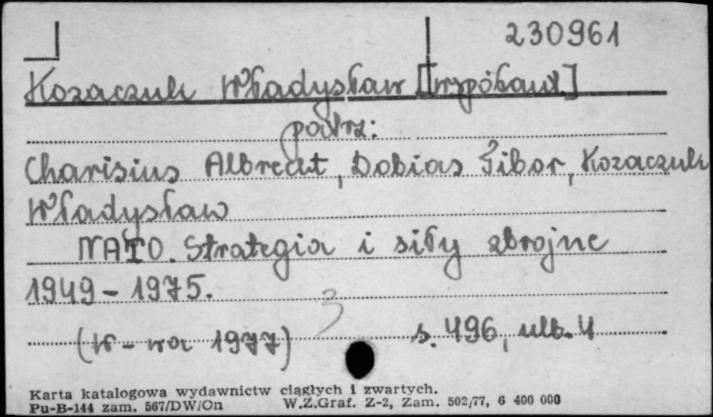 230961
Kozaczuk Władysław [[współaut.]
patrz:
Charisius Albrecht, Dobias Tibor, Kozaczuk
Władysław
NATO. Strategia i siły zbrojne
1949-1975.
(W-wa 1977) 3 s. 496, ulb. 4
Karta katalogowa wydawnictw ciągłych i zwartych.
Pu-B-144 zam. 567/DW/On W.Z.Graf. Z-2, Zam. 502/77, 6 400 000